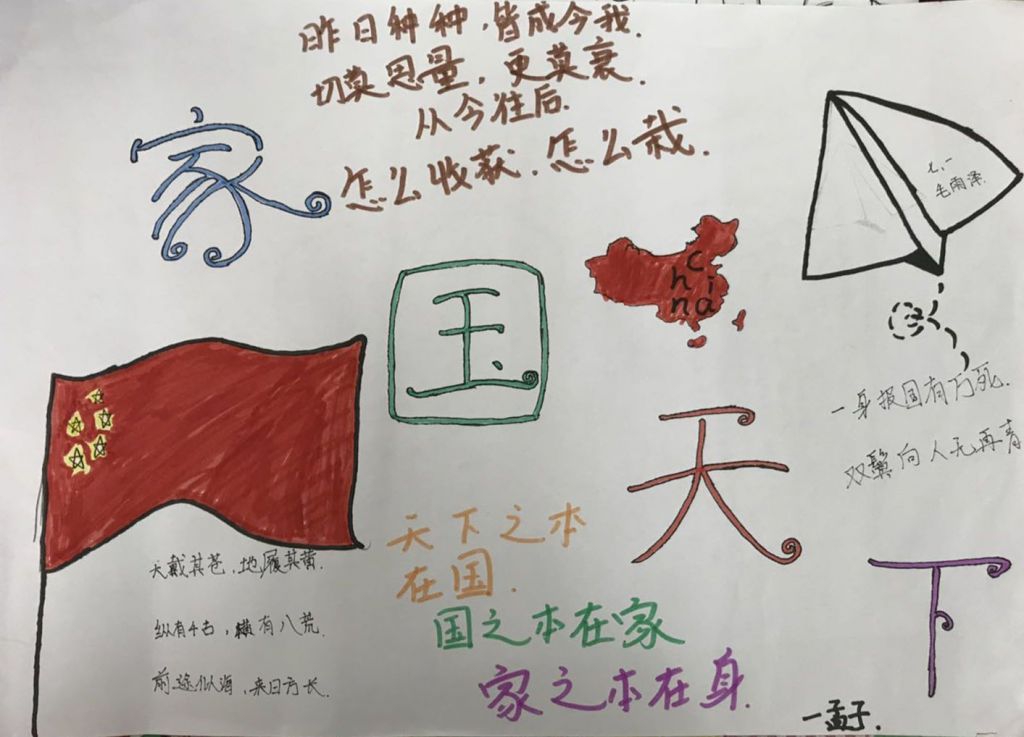 昨日种种，皆成今我.
切莫思量，更莫哀.
从今往后.
怎么收获.怎么栽.
家
七一
毛雨泽.
国
China
一身报国有万死.
双鬓向人无再青
天
下
天戴其苍，地履其黄.
纵有千古，横有八荒.
前途似海，来日方长.
天下之本
在国.
国之本在家
家之本在身.
一孟子.